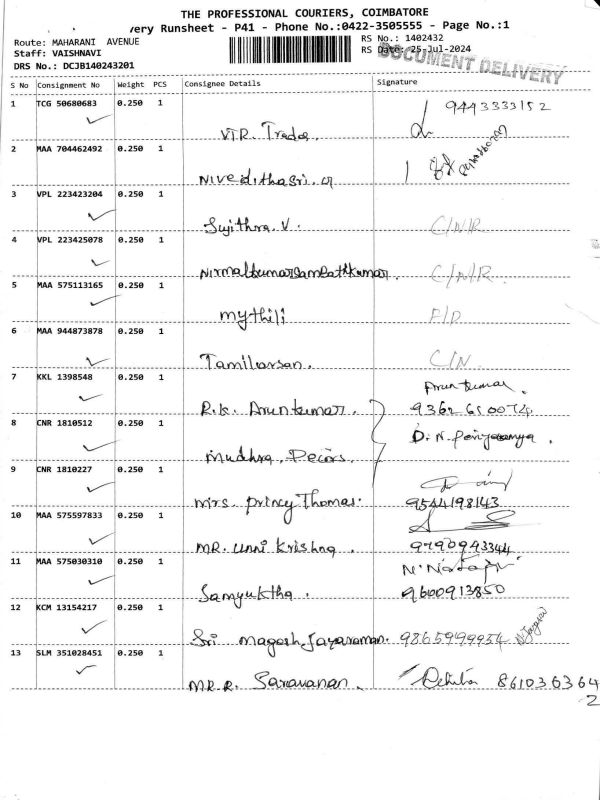 THE PROFESSIONAL COURIERS, COIMBATORE
very Runsheet - P41 - Phone No.:0422-3505555 - Page No.:1
Route: MAHARANI AVENUE
RS No.: 1402432
Staff: VAISHNAVI
RS Date: 25-Jul-2024
DRS No.: DCJB140243201
DOCUMENT DELIVERY
S No Consignment No Weight PCS Consignee Details Signature
1 TCG 50680683 0.250 1
VTR. Trades. 9443333152
2 MAA 704462492 0.250 1
Nivedithasri. M
3 VPL 223423204 0.250 1
Sujithra. V. C/N/R
4 VPL 223425078 0.250 1
Nirmalkumarsambathkumar. C/N/R.
5 MAA 575113165 0.250 1
mythili F/D
6 MAA 944873878 0.250 1
Tamilarsan. C/N
7 KKL 1398548 0.250 1
Arunkumar.
R.K. Arunkumar. 9362610074
8 CNR 1810512 0.250 1
Mudhra Decors.
9 CNR 1810227 0.250 1
Mrs. Princy Thomas. 9544198143
10 MAA 575597833 0.250 1
MR. Unni Krishna. 9790943344
11 MAA 575030310 0.250 1
Samyuktha. 9600913850
12 KCM 13154217 0.250 1
Sri Magesh Jayaraman. 9865999954
13 SLM 351028451 0.250 1
MR. R. Saravanan. 861036364
2